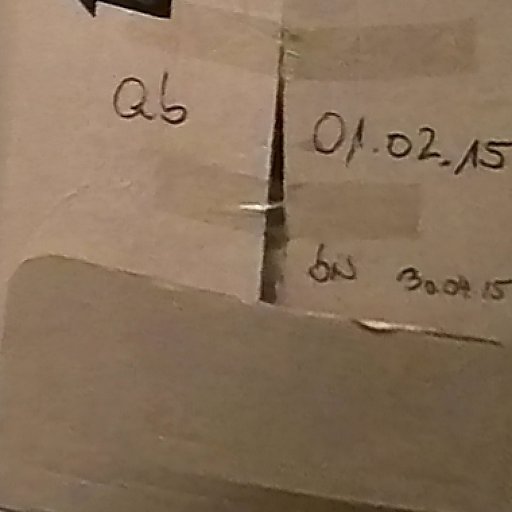 ab 01.02.15
bis 30.04.15